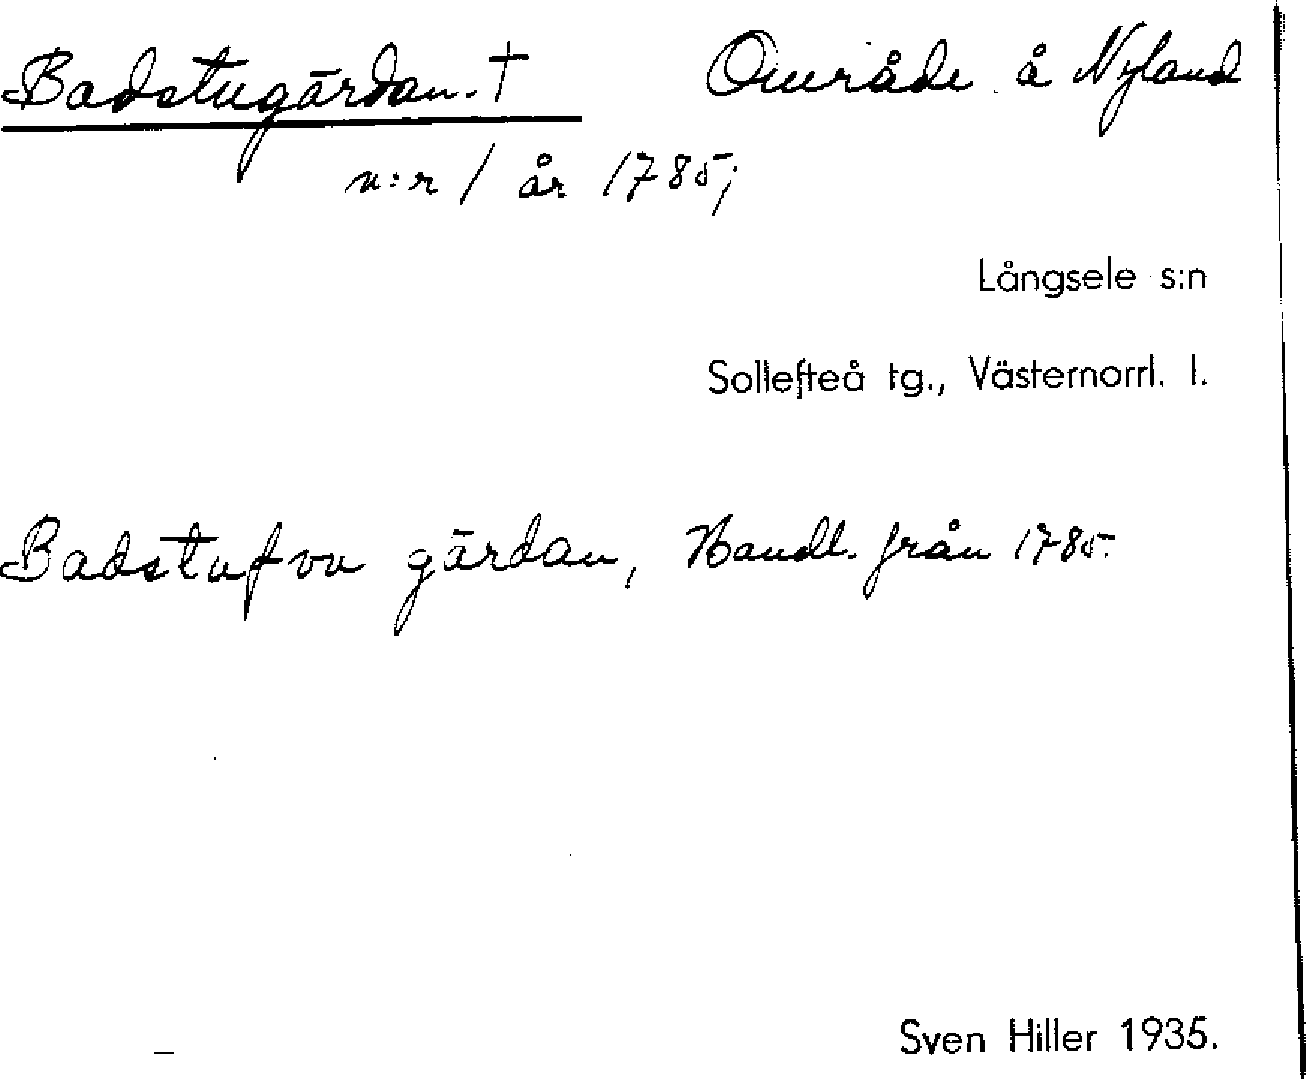 Badstugärdan. † Område å Nyland
n:r 1 år 1785;
Långsele s:n
Sollefteå tg., Västernorrl. l.
Badstufvu gärdan, Handl. från 1785.
Sven Hiller 1935.